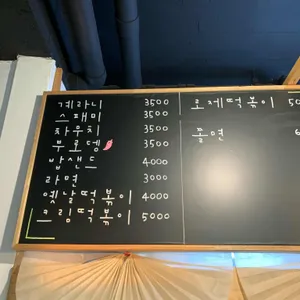 계라니 3500
스패미 3500
차우치 3500
부로덩 3500
밥샌드 4000
라면 3000
옛날떡볶이 4000
크림떡볶이 5000
로제떡볶이
쫄면